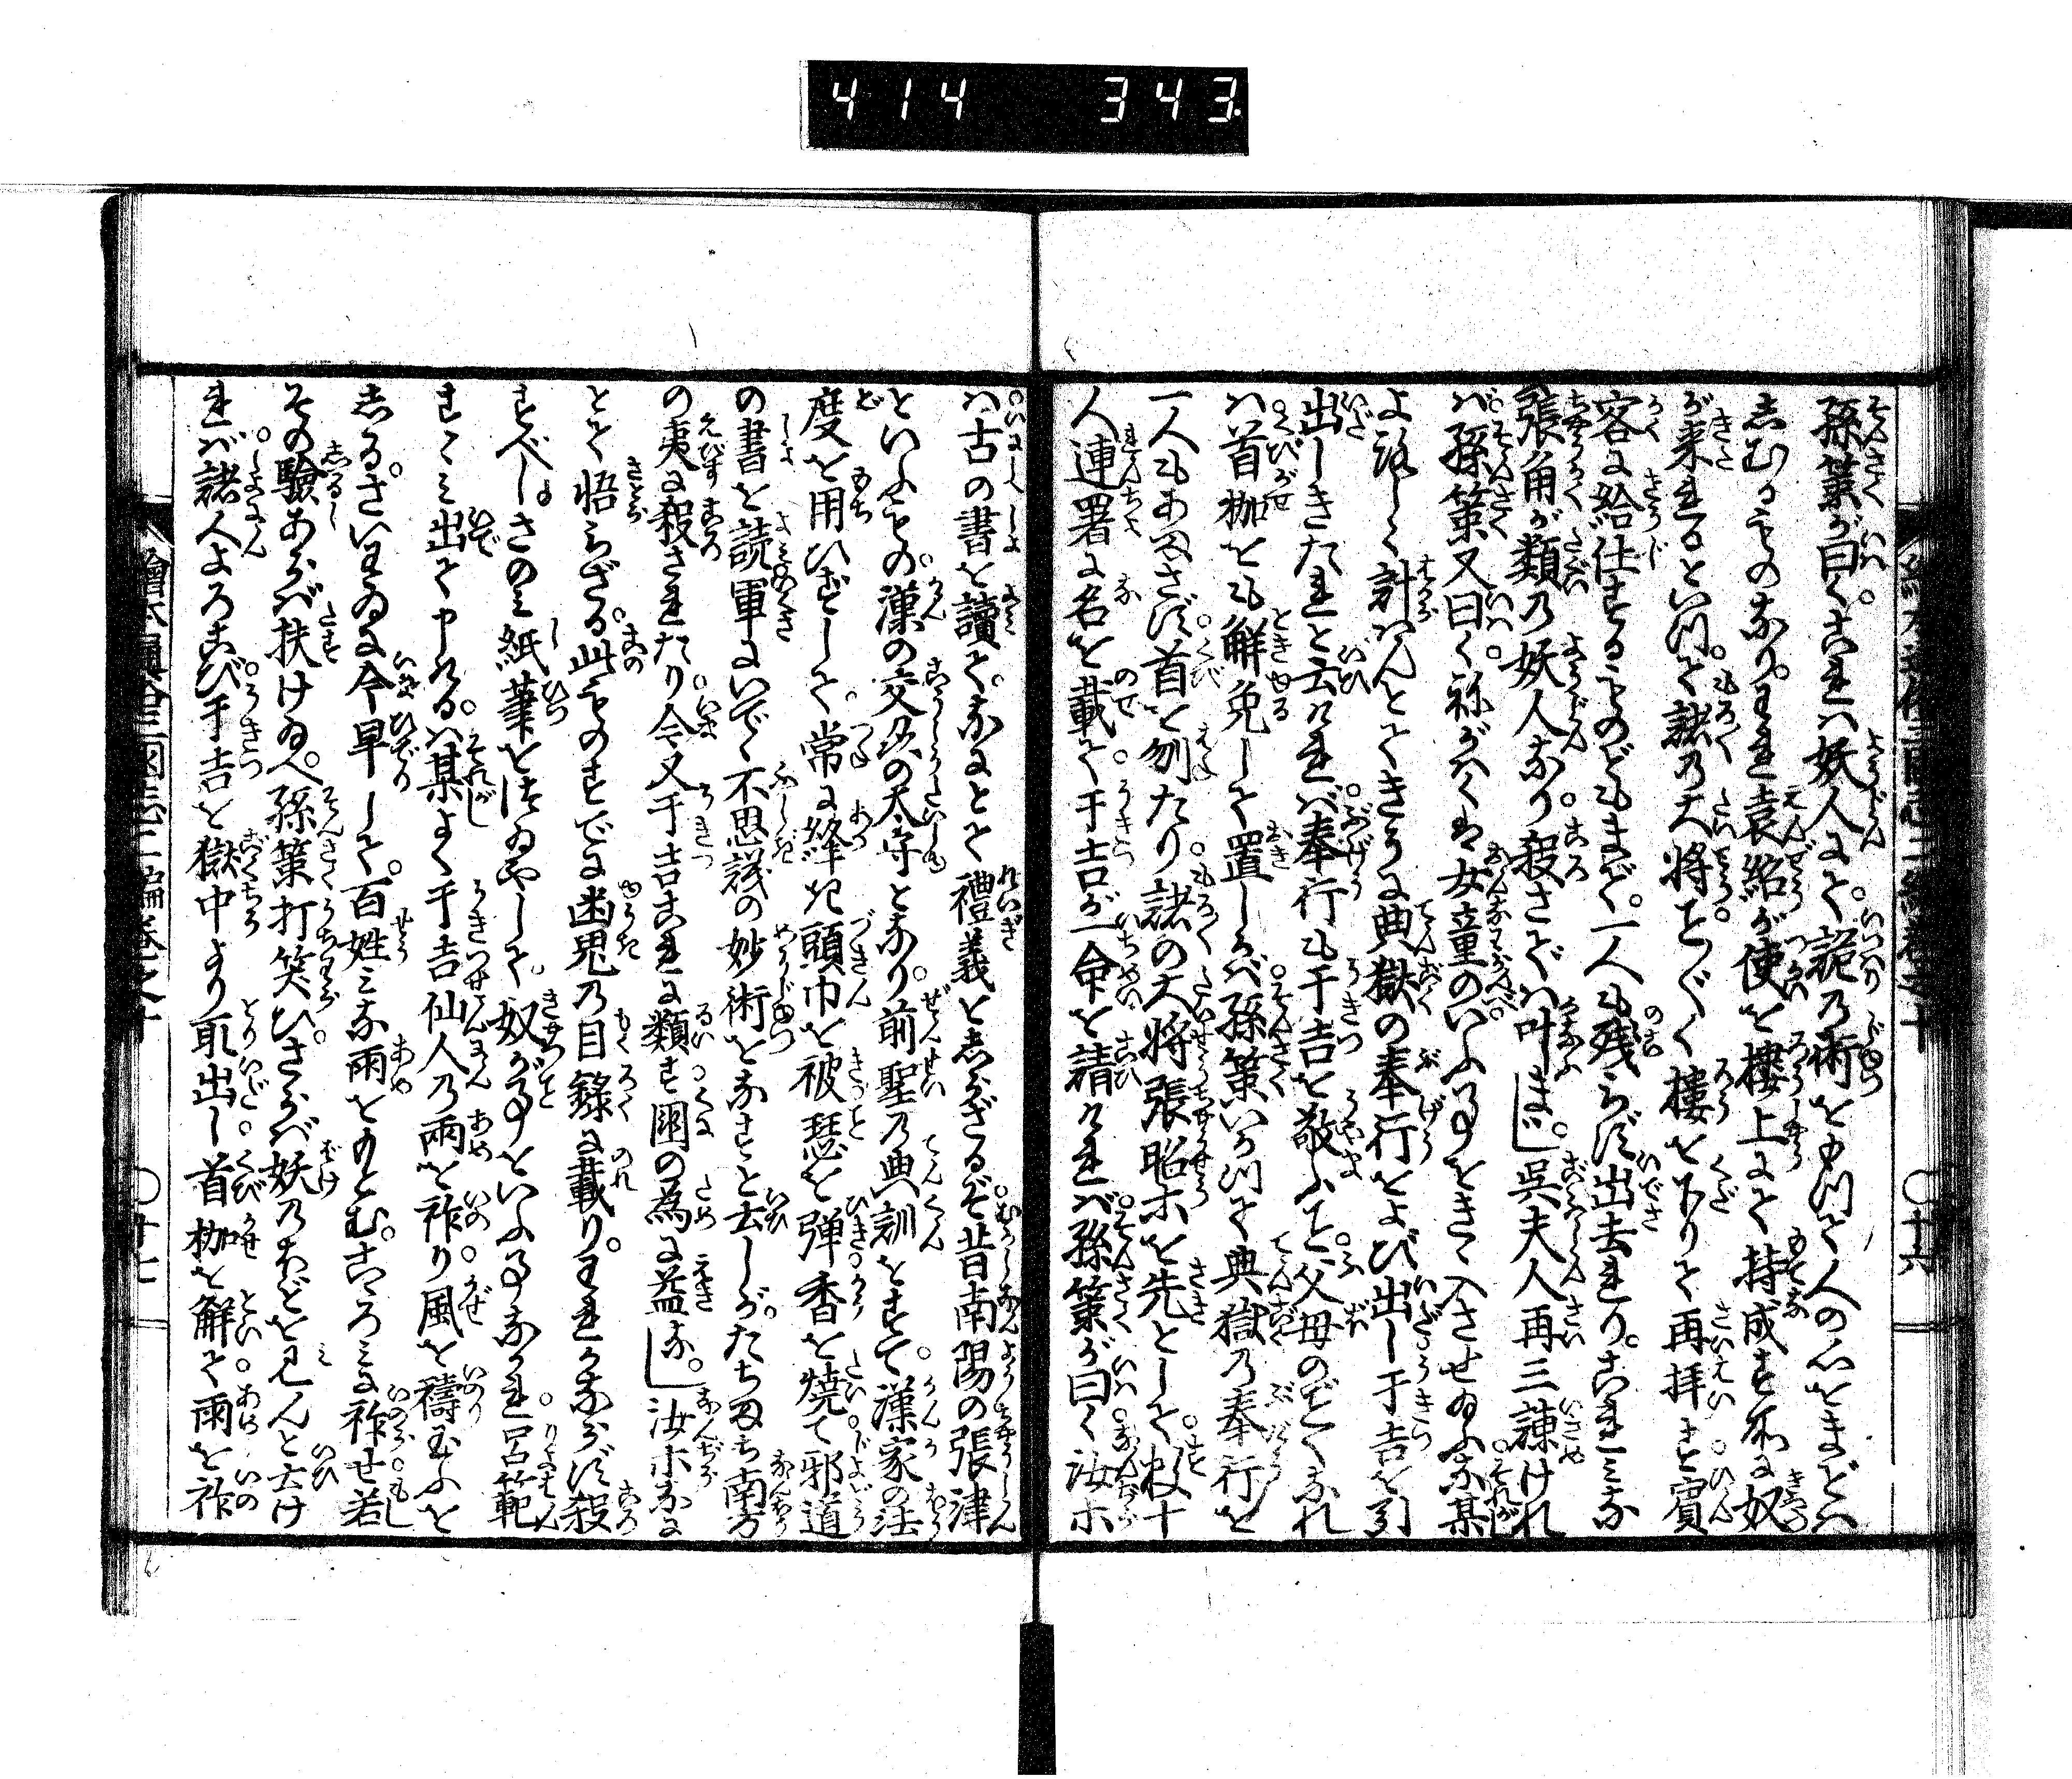 414 343
孫策が曰くこれは妖人にて詭の術を以て人の心をまどは
しむるものなり。われ袁紹が使を楼上にて持成す所に奴
が来ると以て諸の大将ことごとく楼を下りて再拝す賓
客に給仕するものどもまで。一人も残らず出去れり。これみな
張角が類の妖人なり。殺さでは叶まじ。」呉夫人再三諫けれ
ば。孫策又曰く。祢がくは女童のいふ事をきゝ入させ給ふな某
よろしく計はんとてきうに典獄の奉行をよび出し于吉を引
出しきたれと云ければ。奉行も于吉を敬ふこと。父母のごとくなれ
は。首枷をも解免して置しかば。孫策いかつて典獄の奉行を
一人もあまさず。首を刎たり。諸の大将張昭ホを先として。数十
人連署に名を載て。于吉が一命を請ければ。孫策が曰く。汝ホ
は。古の書を読て。なにとて礼義をしらざるぞ。昔南陽の張津
といふもの。漢の交州の太守となり。前聖の典訓をすて。漢家の法
度を用ひずして。常に絳き頭巾を被。瑟を弾。香を焼て。邪道
の書を読。軍にいでゝ。不思議の妙術をなすと云しが。たちまち南方
の夷に殺されたり。今又于吉これに類す。国の為に益なし。」汝ホなに
とて悟らざる。此ものすでに幽鬼の目録に載り。われかならず殺
すべし。さのみ紙筆をついやして。奴が事をいふ事なかれ。呂範
すゝみ出て申ける。は。某よく于吉仙人の雨を祚り。風を祷玉ふを
しる。さいわゐに今旱して。百姓みな雨をもとむ。こゝろみに祚せ。若
その験あらば扶け給へ。孫策打笑ひ。さらば妖のわざを見んと云け
れば。諸人よろこび。于吉を獄中より取出し。首枷を解て。雨を祚
絵本通俗三国志二編巻之十 〇十六
絵本通俗三国志二編巻之十 〇十七